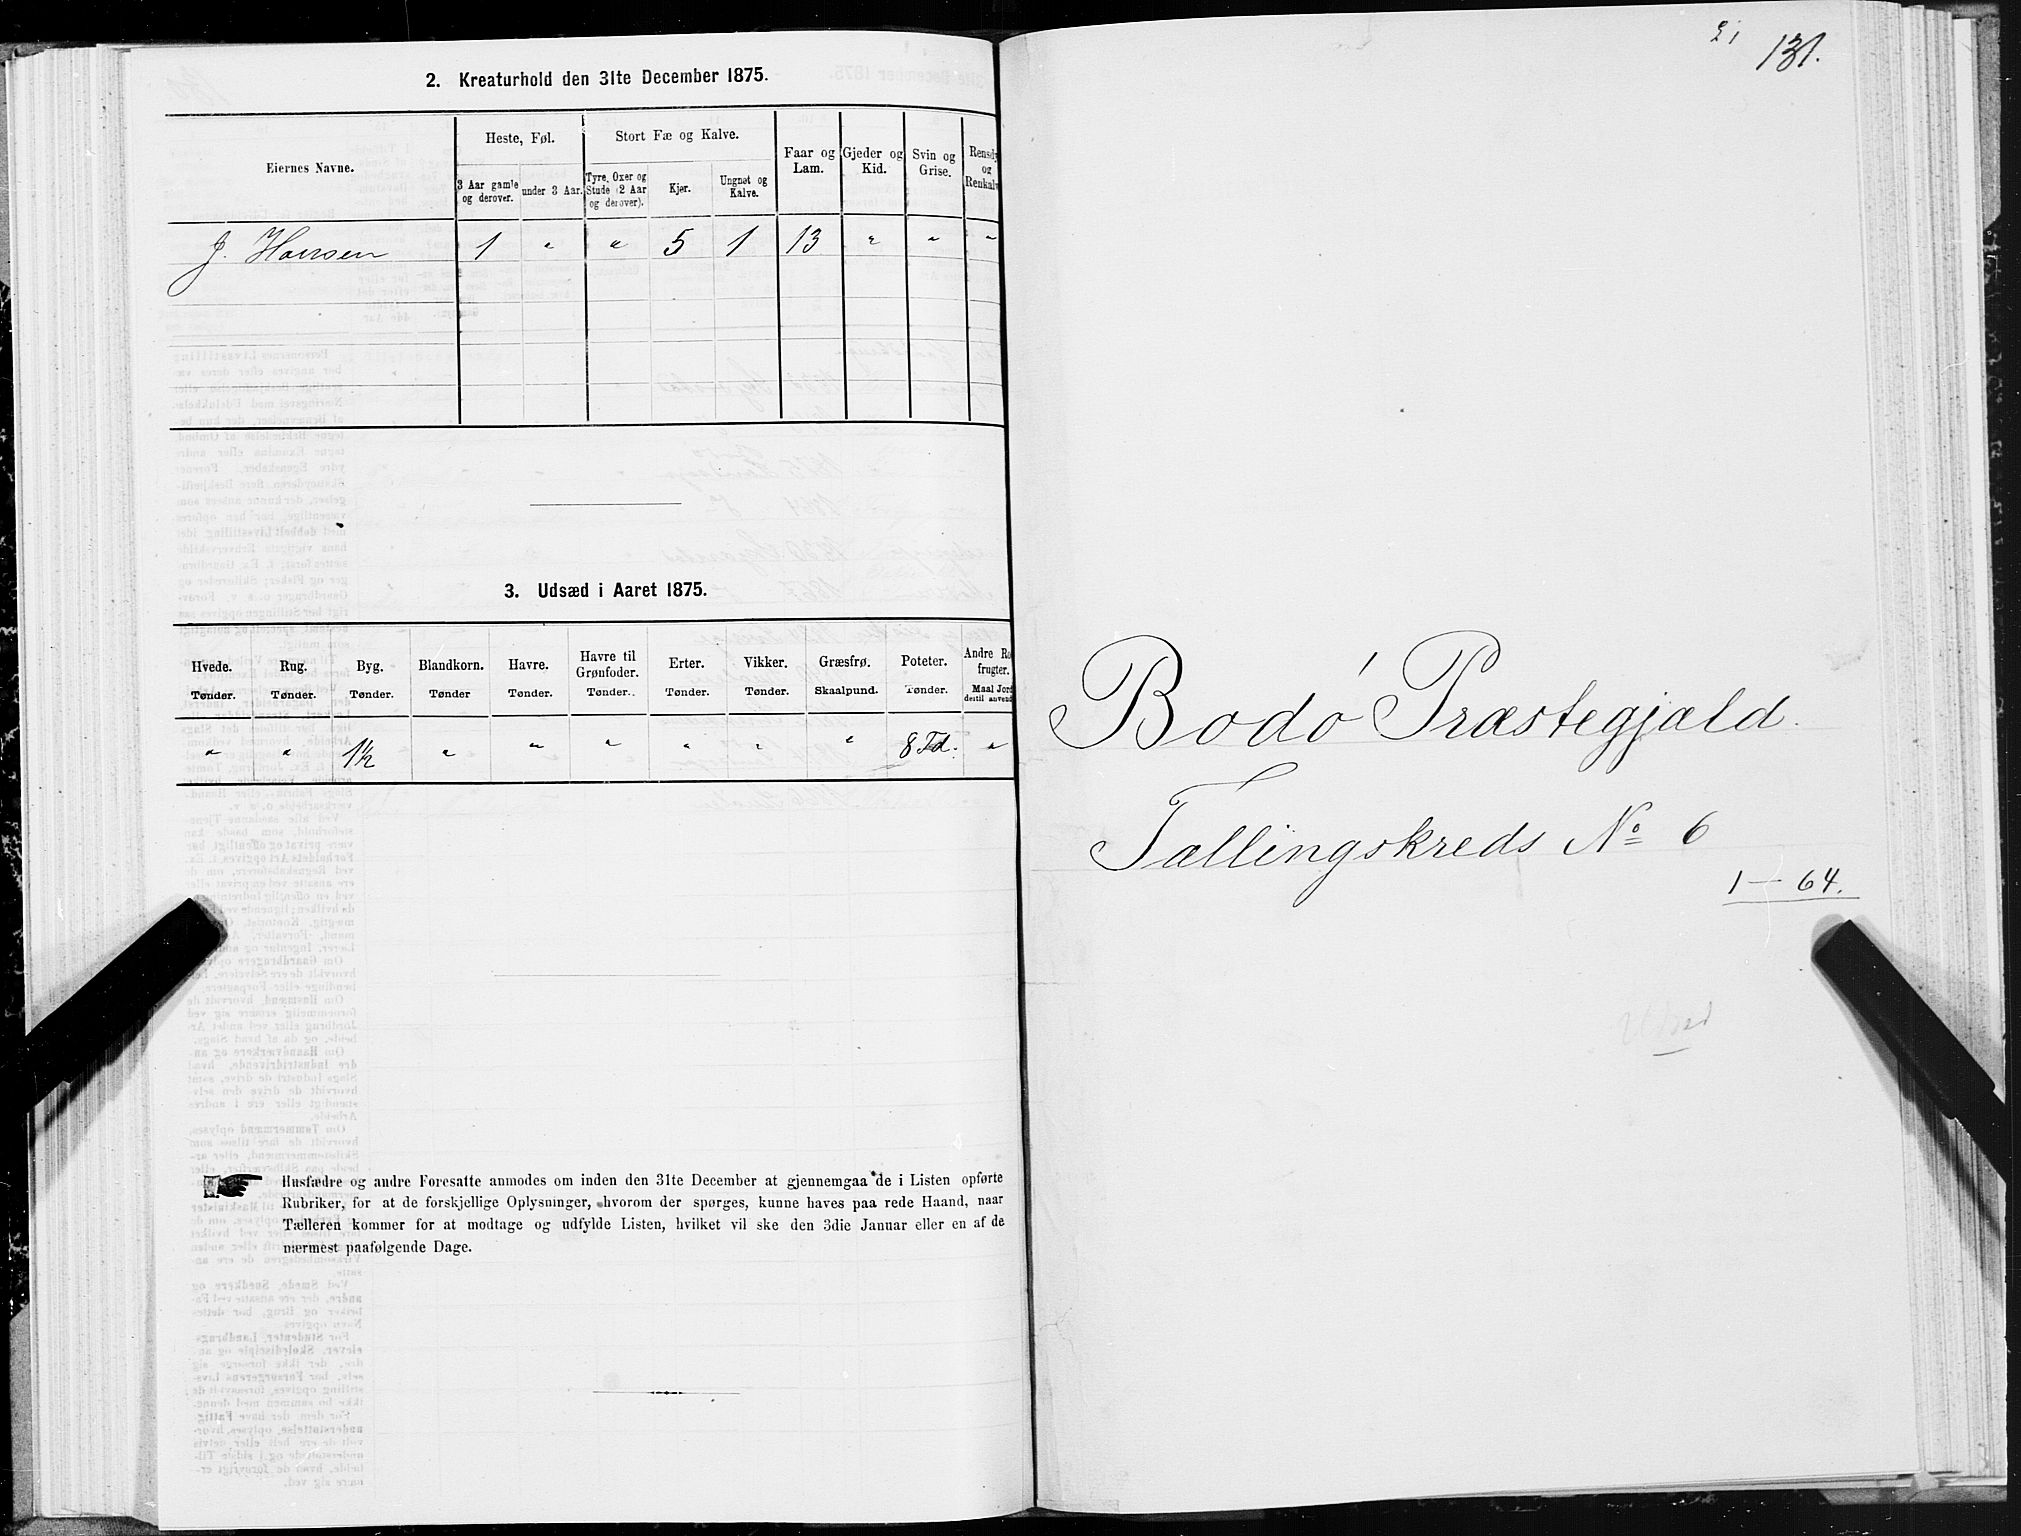 2. Kreaturhold den 31te December 1875.
Eiernes Navne.
Heste, Føl.
3 Aar gamle og derover.
under 3 Aar.
Stort Fæ og Kalve.
Tyre, Oxer og Stude (2 Aar og derover).
Kjør.
Ungnøt og Kalve.
Faar og Lam.
Gjeder og Kid.
Svin og Grise.
Rensdy
og
Renkalv
J. Hansen 1 " " 5 1 13 " " "
3. Udsæd i Aaret 1875.
Hvede. Rug. Byg. Blandkorn. Havre. Havre til Grønfoder. Erter. Vikker. Græsfrø. Poteter. Andre Ro frugter.
Tønder. Tønder. Tønder. Tønder Tønder. Tønder. Tønder. Tønder. Skaalpund. Tønder. Maal Jord destil anvend
" " 1½ " " " " " " 8 Td. "
Husfædre og andre Foresatte anmodes om inden den 31te December at gjennemgaa de i Listen opførte
Rubriker, for at de forskjellige Oplysninger, hvorom der spørges, kunne haves paa rede Haand, naar
Tælleren kommer for at modtage og udfylde Listen, hvilket vil ske den 3die Januar eller en af de
nærmest paafølgende Dage.
131.
Bodó Præstegjæld.
Tællingskreds No 6
1 — 64.